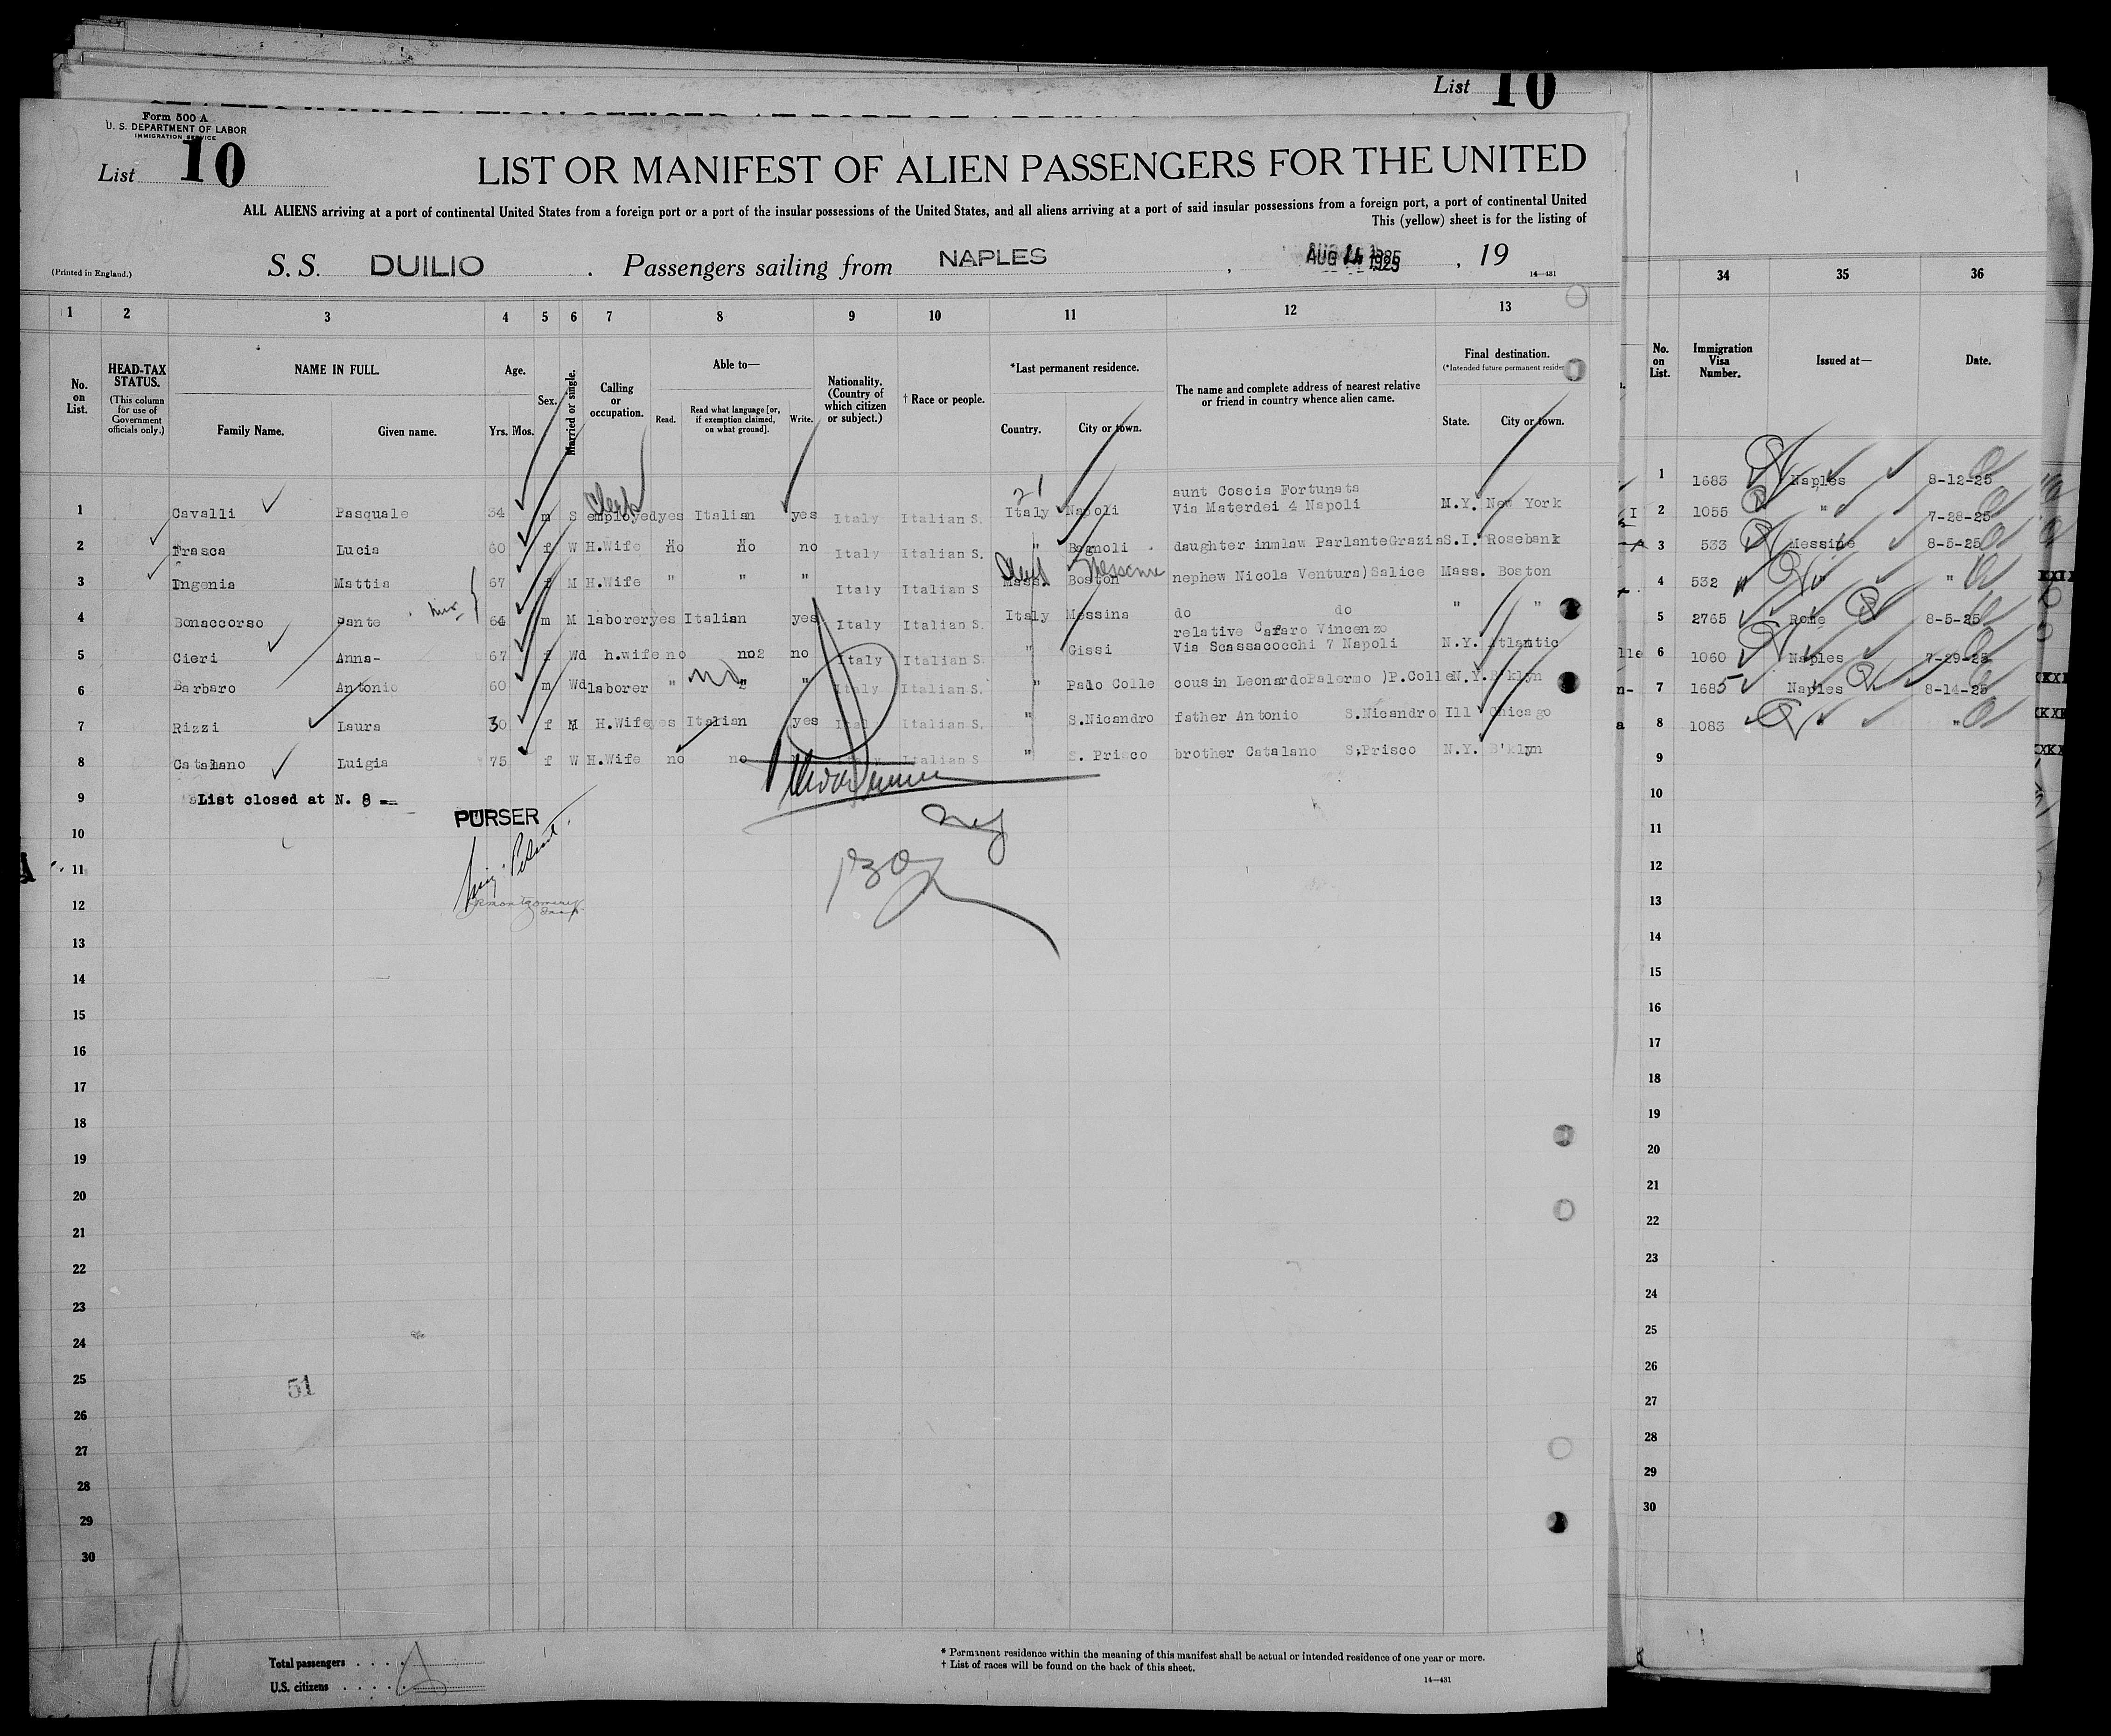 List 10
Form 500 A
U. S. DEPARTMENT OF LABOR
IMMIGRATION SERVICE
List 10
LIST OR MANIFEST OF ALIEN PASSENGERS FOR THE UNITED
ALL ALIENS arriving at a port of continental United States from a foreign port or a port of the insular possessions of the United States, and all aliens arriving at a port of said insular possessions from a foreign port, a port of continental United
This (yellow) sheet is for the listing of
(Printed in England.)
S. S. DUILIO . Passengers sailing from NAPLES , AUG 1925 , 19
14—431
1 2 3 4 5 6 7 8 9 10 11 12 13
No. on List.
HEAD-TAX STATUS.
(This column for use of Government officials only.)
NAME IN FULL.
Family Name. Given name.
Age.
Yrs. Mos.
Sex.
Married or single.
Calling or occupation.
Able to—
Read. Read what language [or, if exemption claimed, on what ground]. Write.
Nationality. (Country of which citizen or subject.)
† Race or people.
*Last permanent residence.
Country. City or town.
The name and complete address of nearest relative or friend in country whence alien came.
Final destination.
(*Intended future permanent reside
State. City or town.
21
aunt Coscia Fortunata
1 Cavalli Pasquale 34 m S employed yes Italian yes Italy Italian S. Italy Napoli Via Materdei 4 Napoli N.Y. New York
2 Frasca Lucia 60 f W H.Wife no no no Italy Italian S. " Bagnoli daughter inmlaw ParlanteGrazia S.I. Rosebank
Messina
3 Ingenia Mattia 67 f M H.Wife " " " Italy Italian S Mass. Boston nephew Nicola Ventura)Salice Mass. Boston
4 Bonaccorso Sante 64 m M laborer yes Italian yes Italy Italian S. Italy Messina do do " "
relative Cafaro Vincenzo
5 Cieri Anna- 67 f Wd h.wife no no2 no Italy Italian S. " Gissi Via Scassacocchi 7 Napoli N.Y. Atlantic
6 Barbaro Antonio 60 m Wd laborer " " " Italy Italian S. " Palo Colle cousin LeonardoPalermo )P.Colle N.Y. B'klyn
7 Rizzi Laura 30 f M H.Wife yes Italian yes Ital Italian S. " S.Nicandro father Antonio S.Nicandro Ill Chicago
8 Catalano Luigia 75 f W H.Wife no no Italian S " S. Prisco brother Catalano S.Prisco N.Y. B'klyn
9 List closed at N. 8
PURSER
10
11
12
Montgomery
Insp.
13
14
15
16
17
18
19
20
21
22
23
24
25
51
26
27
28
29
30
Total passengers
U.S. citizens
* Permanent residence within the meaning of this manifest shall be actual or intended residence of one year or more.
† List of races will be found on the back of this sheet.
14—431
34 35 36
No. on List.
Immigration Visa Number.
Issued at—
Date.
1 1683 Naples 8-12-25
2 1055 " 7-28-25
3 533 Messina 8-5-25
4 532 " "
5 2765 Rome 8-5-25
6 1060 Naples 7-29-25
7 1685 Naples 8-14-25
8 1083 " "
9
10
11
12
13
14
15
16
17
18
19
20
21
22
23
24
25
26
27
28
29
30